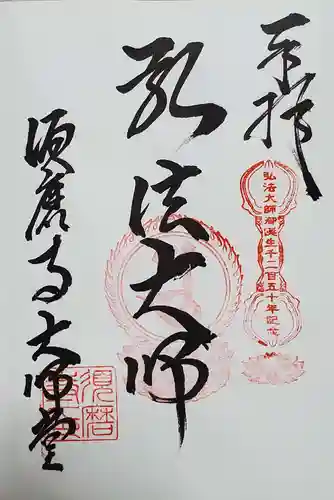 奉拝
弘法大師御誕生千二百五十年記念
弘法大師
須磨寺大師堂
須磨